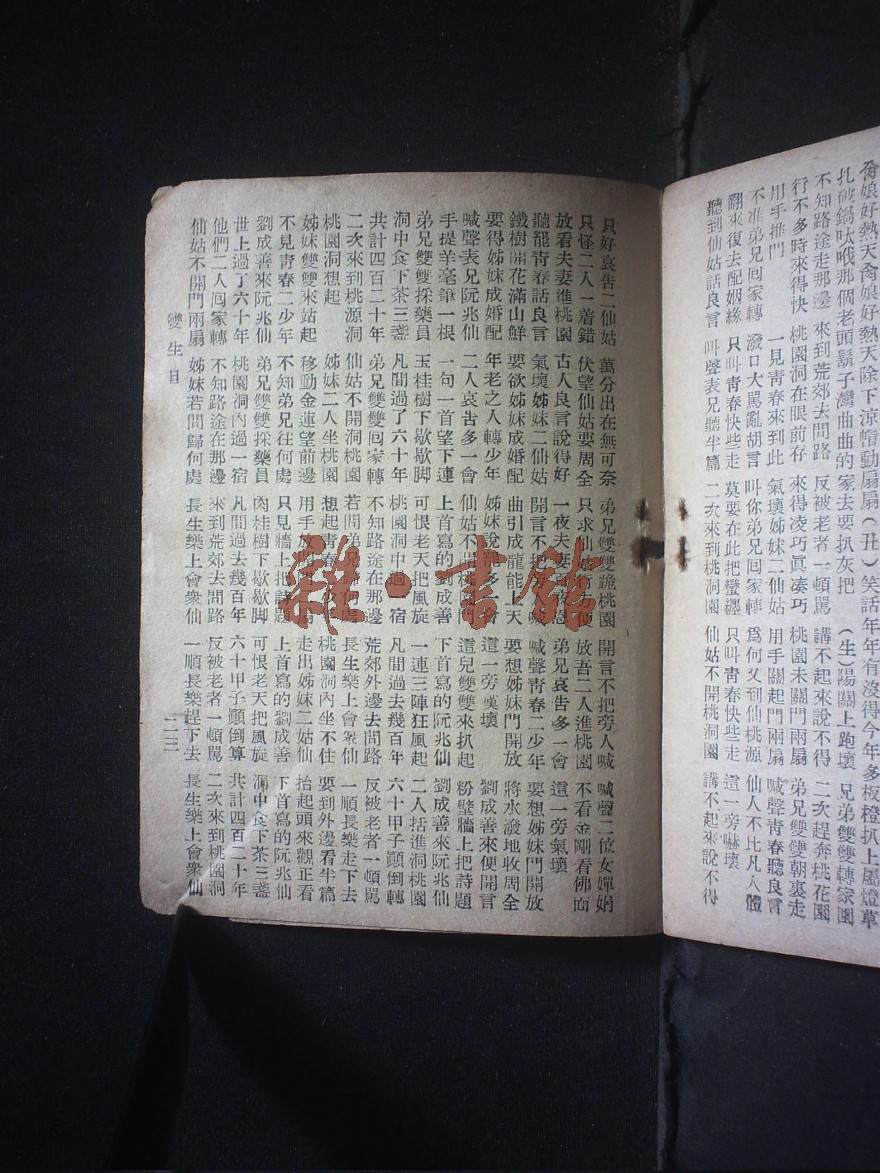 爲娘好熱天爲娘好熱天除下涼帽動扇扇（丑）笑話年年有沒得今年多板櫈扒上屬燈草
扎破鍋吠哦那個老頭鬍子灣曲曲的家去要扒灰把（生）陽關上跑壞 兄弟雙雙轉家園
不知路途走那邊 來到荒郊去問路 反被老者一頓罵 講不起來說不得 二次趕奔桃花園
行不多時來得快 桃園洞在眼前存 來得凌巧眞凑巧 桃園未關門兩扇 弟兄雙雙朝裏走
用手推門 一見青春來到此 氣壞姊妹二仙姑 用手關起門兩扇 喊聲青春聽良言
不准弟兄囘家轉 潑口大罵亂胡言 叫你弟兄囘家轉 爲何又到仙桃源 仙人不比凡人體
翻來復去配姻緣 只叫青春快些走 莫要在此把蠻纏 只叫青春快些走 這一旁嚇壞
聽到仙姑話良言 叫聲表兄聽半篇 二次來到桃洞園 仙姑不開桃洞園 講不起來說不得
只好哀告二仙姑 萬分出在無可奈 弟兄雙雙跪桃園 開言不把旁人喊 喊聲二位女嬋娟
只怪二人一着錯 伏望仙姑要周全 只求仙姑行方便 放吾二人進桃園 不看金剛看佛面
放看夫妻進桃園 古人良言說得好 一夜夫妻 恩 弟兄哀告多一會 這一旁氣壞
聽罷青春話良言 氣壞姊妹二仙姑 開言不把 喊 喊聲青春二少年 要想姊妹門開放
鐵樹開花滿山鮮 要欲姊妹成婚配 曲引成龍能上天 要想姊妹門開放 將水潑地收周全
要得姊妹成婚配 年老之人轉少年 姊妹說 多一會 這一旁嘆壞 劉成善來便開言
喊聲表兄阮兆仙 二人哀告多一會 仙姑不 桃園門 這兒雙雙來扒起 粉壁牆上把詩題
手提羊毫筆一根 一句一首望下連 上首寫的劉成善 下首寫的阮兆仙 劉成善來阮兆仙
弟兄雙雙採藥員 玉桂樹下歇歇脚 可恨老天把風旋 一連三陣狂風起 二人括進洞桃園
洞中食下茶三盞 凡間過了六十年 桃園洞中過一宿 凡間過去幾百年 六十甲子顚倒轉
共計四百二十年 弟兄雙雙囘家轉 不知路途在那邊 荒郊外邊去問路 反被老者一頓罵
二次來到桃源洞 仙姑不開洞桃園 若問弟兄 處 長生樂上會衆仙 一順長樂走下去
桃園洞想起 姊妹二人坐桃園 想起青春 少年 桃園洞內坐不住 要到外邊看半篇
姊妹雙雙來站起 移動金蓮望前邊 用手放 走出姊妹二仙姑 抬起頭來觀正看
不見青春二少年 不知弟兄往何處 只見牆上把詩題 上首寫的劉成善 下首寫的阮兆仙
劉成善來阮兆仙 弟兄雙雙採藥員 肉桂樹下歇歇脚 可恨老天把風旋 洞中食下茶三盞
世上過了六十年 桃園洞內過一宿 凡間過去幾百年 六十甲子顚倒算 共計四百二十年
他們二人囘家轉 不知路途在那邊 來到荒郊去問路 反被老者一頓罵 二次來到桃園洞
仙姑不開門兩扇 姊妹若問歸何處 長生樂上會衆仙 一順長樂趕下去 長生樂上會衆仙
雙生日 二三
雜·書館